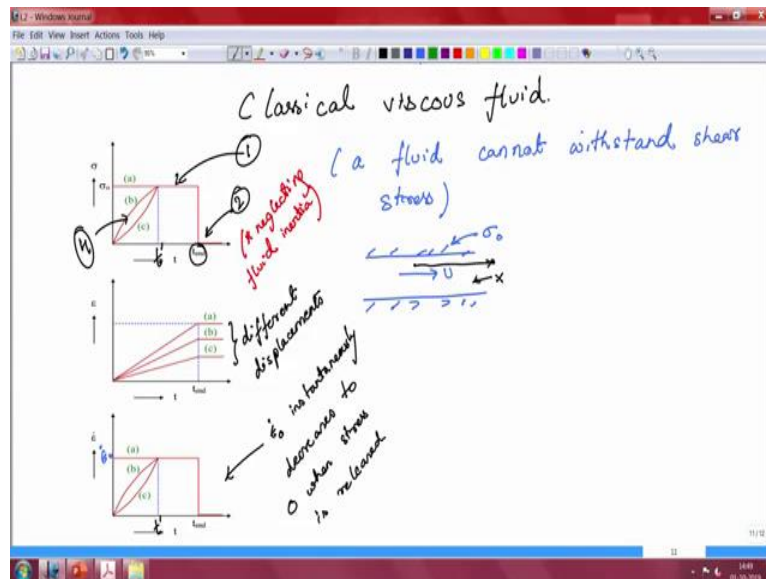 L2 - Windows Journal
File Edit View Insert Actions Tools Help
Classical viscous fluid.
(a fluid cannot withstand shear
stress)
σ
σ₀
(a)
(b)
(c)
1
2
t'
t
t_end
(* neglecting
fluid inertia)
σ₀
U
x
ε
(a)
(b)
(c)
t
t_end
different
displacements
ε̇
ε̇₀
(a)
(b)
(c)
t'
t
t_end
ε̇₀ instantaneously
decreases to
0 when stress
is released
11/12
11
14:49